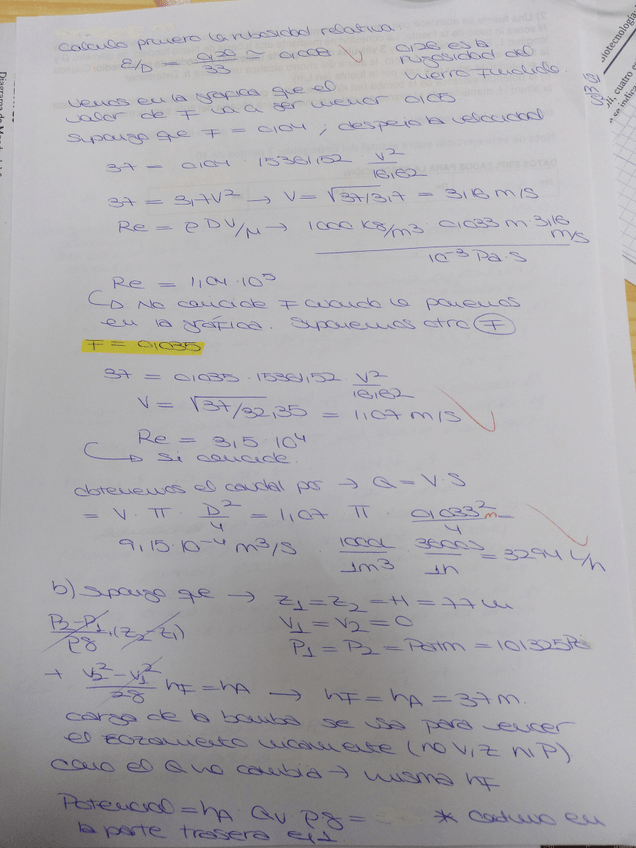 Calculo primero la rubosidad relativa.
ε/D = 0,26/33 ≃ 0,008 0,26 es la
rugosidad del
hierro Fundido.
vemos en la gráfica que el
valor de F va a ser menor 0,05
Supongo que F = 0,04, despejo la velocidad
37 = 0,04 · 1536,152 v²/16,62
37 = 3,7v² → V = √37/3,7 = 3,16 m/s
Re = ρDV/μ → 1000 kg/m³ · 0,033 m 3,16 m/s / 10⁻³ Pa·s
Re = 1,04·10⁵
↳ No coincide F cuando lo ponemos
en la gráfica. Suponemos otro F
F = 0,035
37 = 0,035 · 1536,152 v²/16,62
V = √37/32,35 = 1,07 m/s
Re = 3,5·10⁴
↳ si coincide.
obtenemos el caudal por → Q = V·S
= V · π · D²/4 = 1,07 π · 0,033² m/4 =
9,15·10⁻⁴ m³/s 1000L/1m³ 3600s/1h = 3294 L/h
b) Supongo que → z₁ = z₂ = H = 77 m
P₂-P₁/ρg + (z₂-z₁) V₁ = V₂ = 0
P₁ = P₂ = Patm = 101325Pa
+ v₂²-v₁²/2g hF = hA → hF = hA = 37 m.
carga de la bomba se usa para vencer
el rozamiento unicamente (no v, z ni P)
como el Q no cambia → misma hF
Potencial = hA · Qv · ρg = * continuo en
la parte trasera ej1